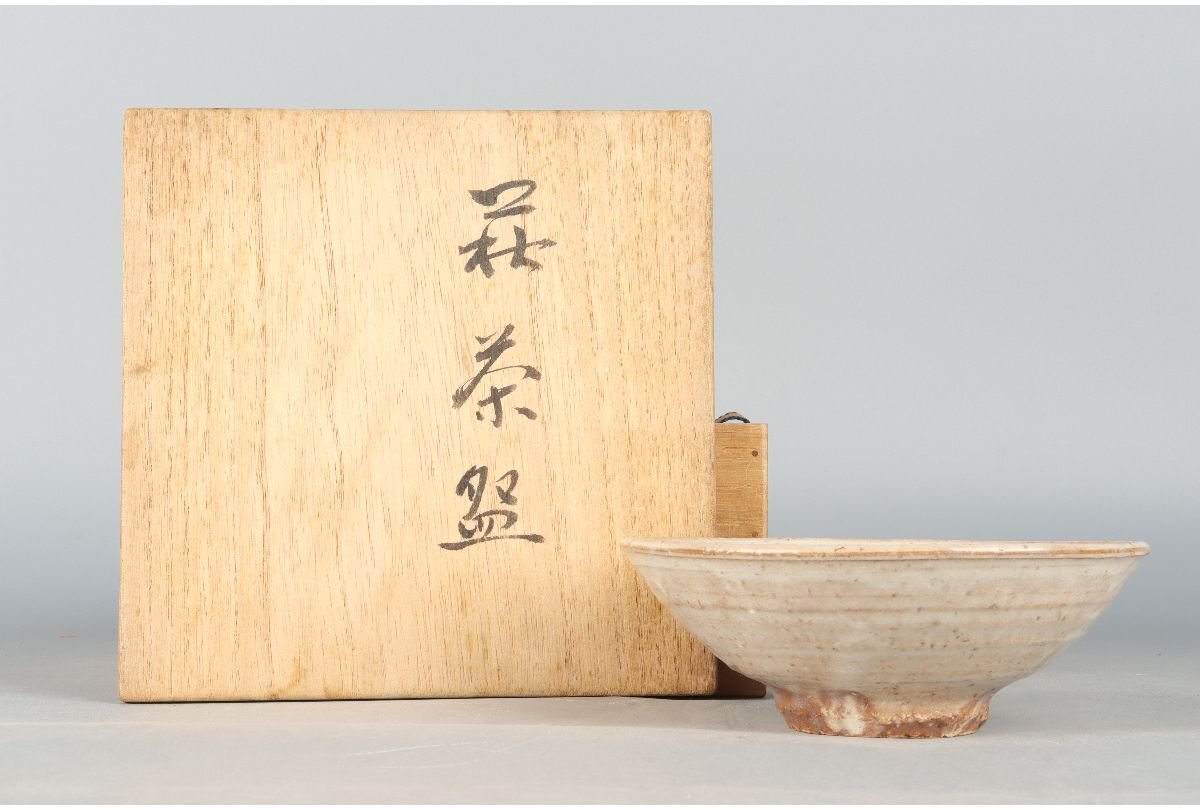 萩茶盌